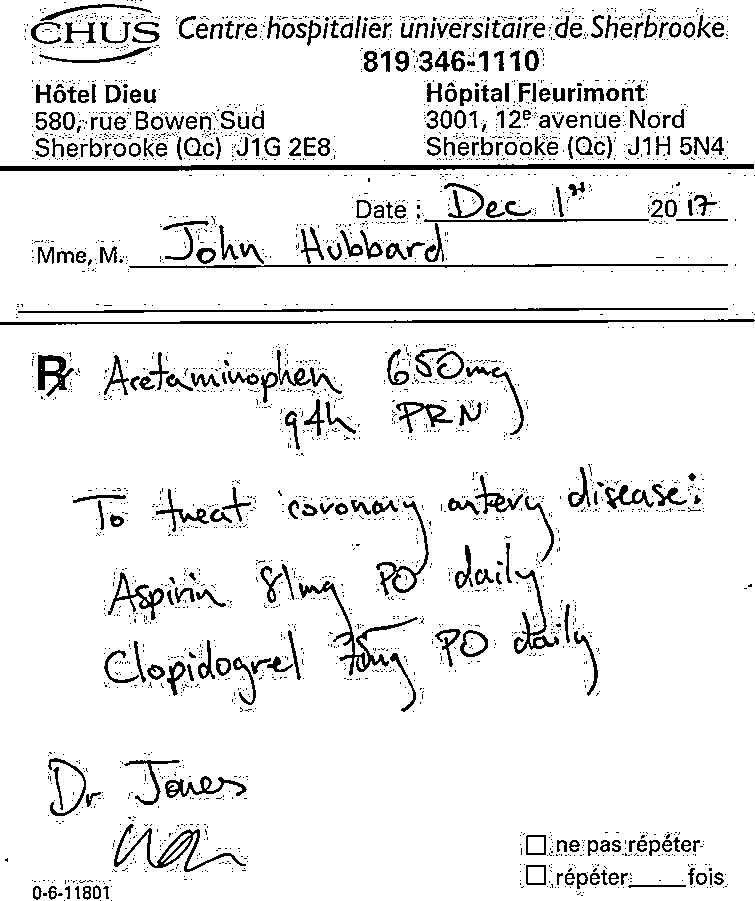 CHUS Centre hospitalier universitaire de Sherbrooke
819 346-1110
Hôtel Dieu
580, rue Bowen Sud
Sherbrooke (Qc) J1G 2E8
Hôpital Fleurimont
3001, 12e avenue Nord
Sherbrooke (Qc) J1H 5N4
Date : Dec 1st 2017
Mme, M. John Hubbard
Rx Acetaminophen 650mg
q4h PRN
To treat coronary artery disease:
Aspirin 81mg PO daily
Clopidogrel 75mg PO daily
Dr Jones
ne pas répéter
répéter____fois
0-6-11801